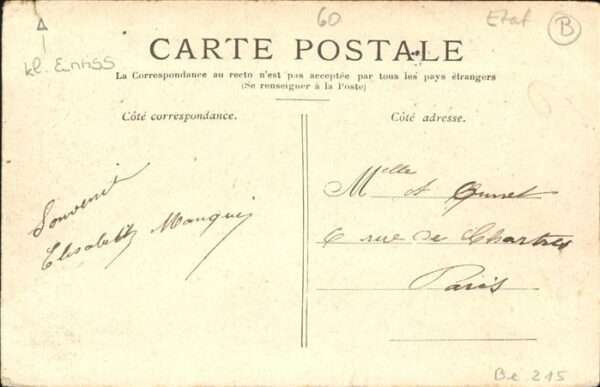 60
Etat
B
kl. Einriss
CARTE POSTALE
La Correspondance au recto n'est pas acceptée par tous les pays étrangers
(Se renseigner à la Poste)
Côté correspondance.
Côté adresse.
Souvenir
Elisabeth
Melle A
6 rue de Chartres
Paris
Be 215